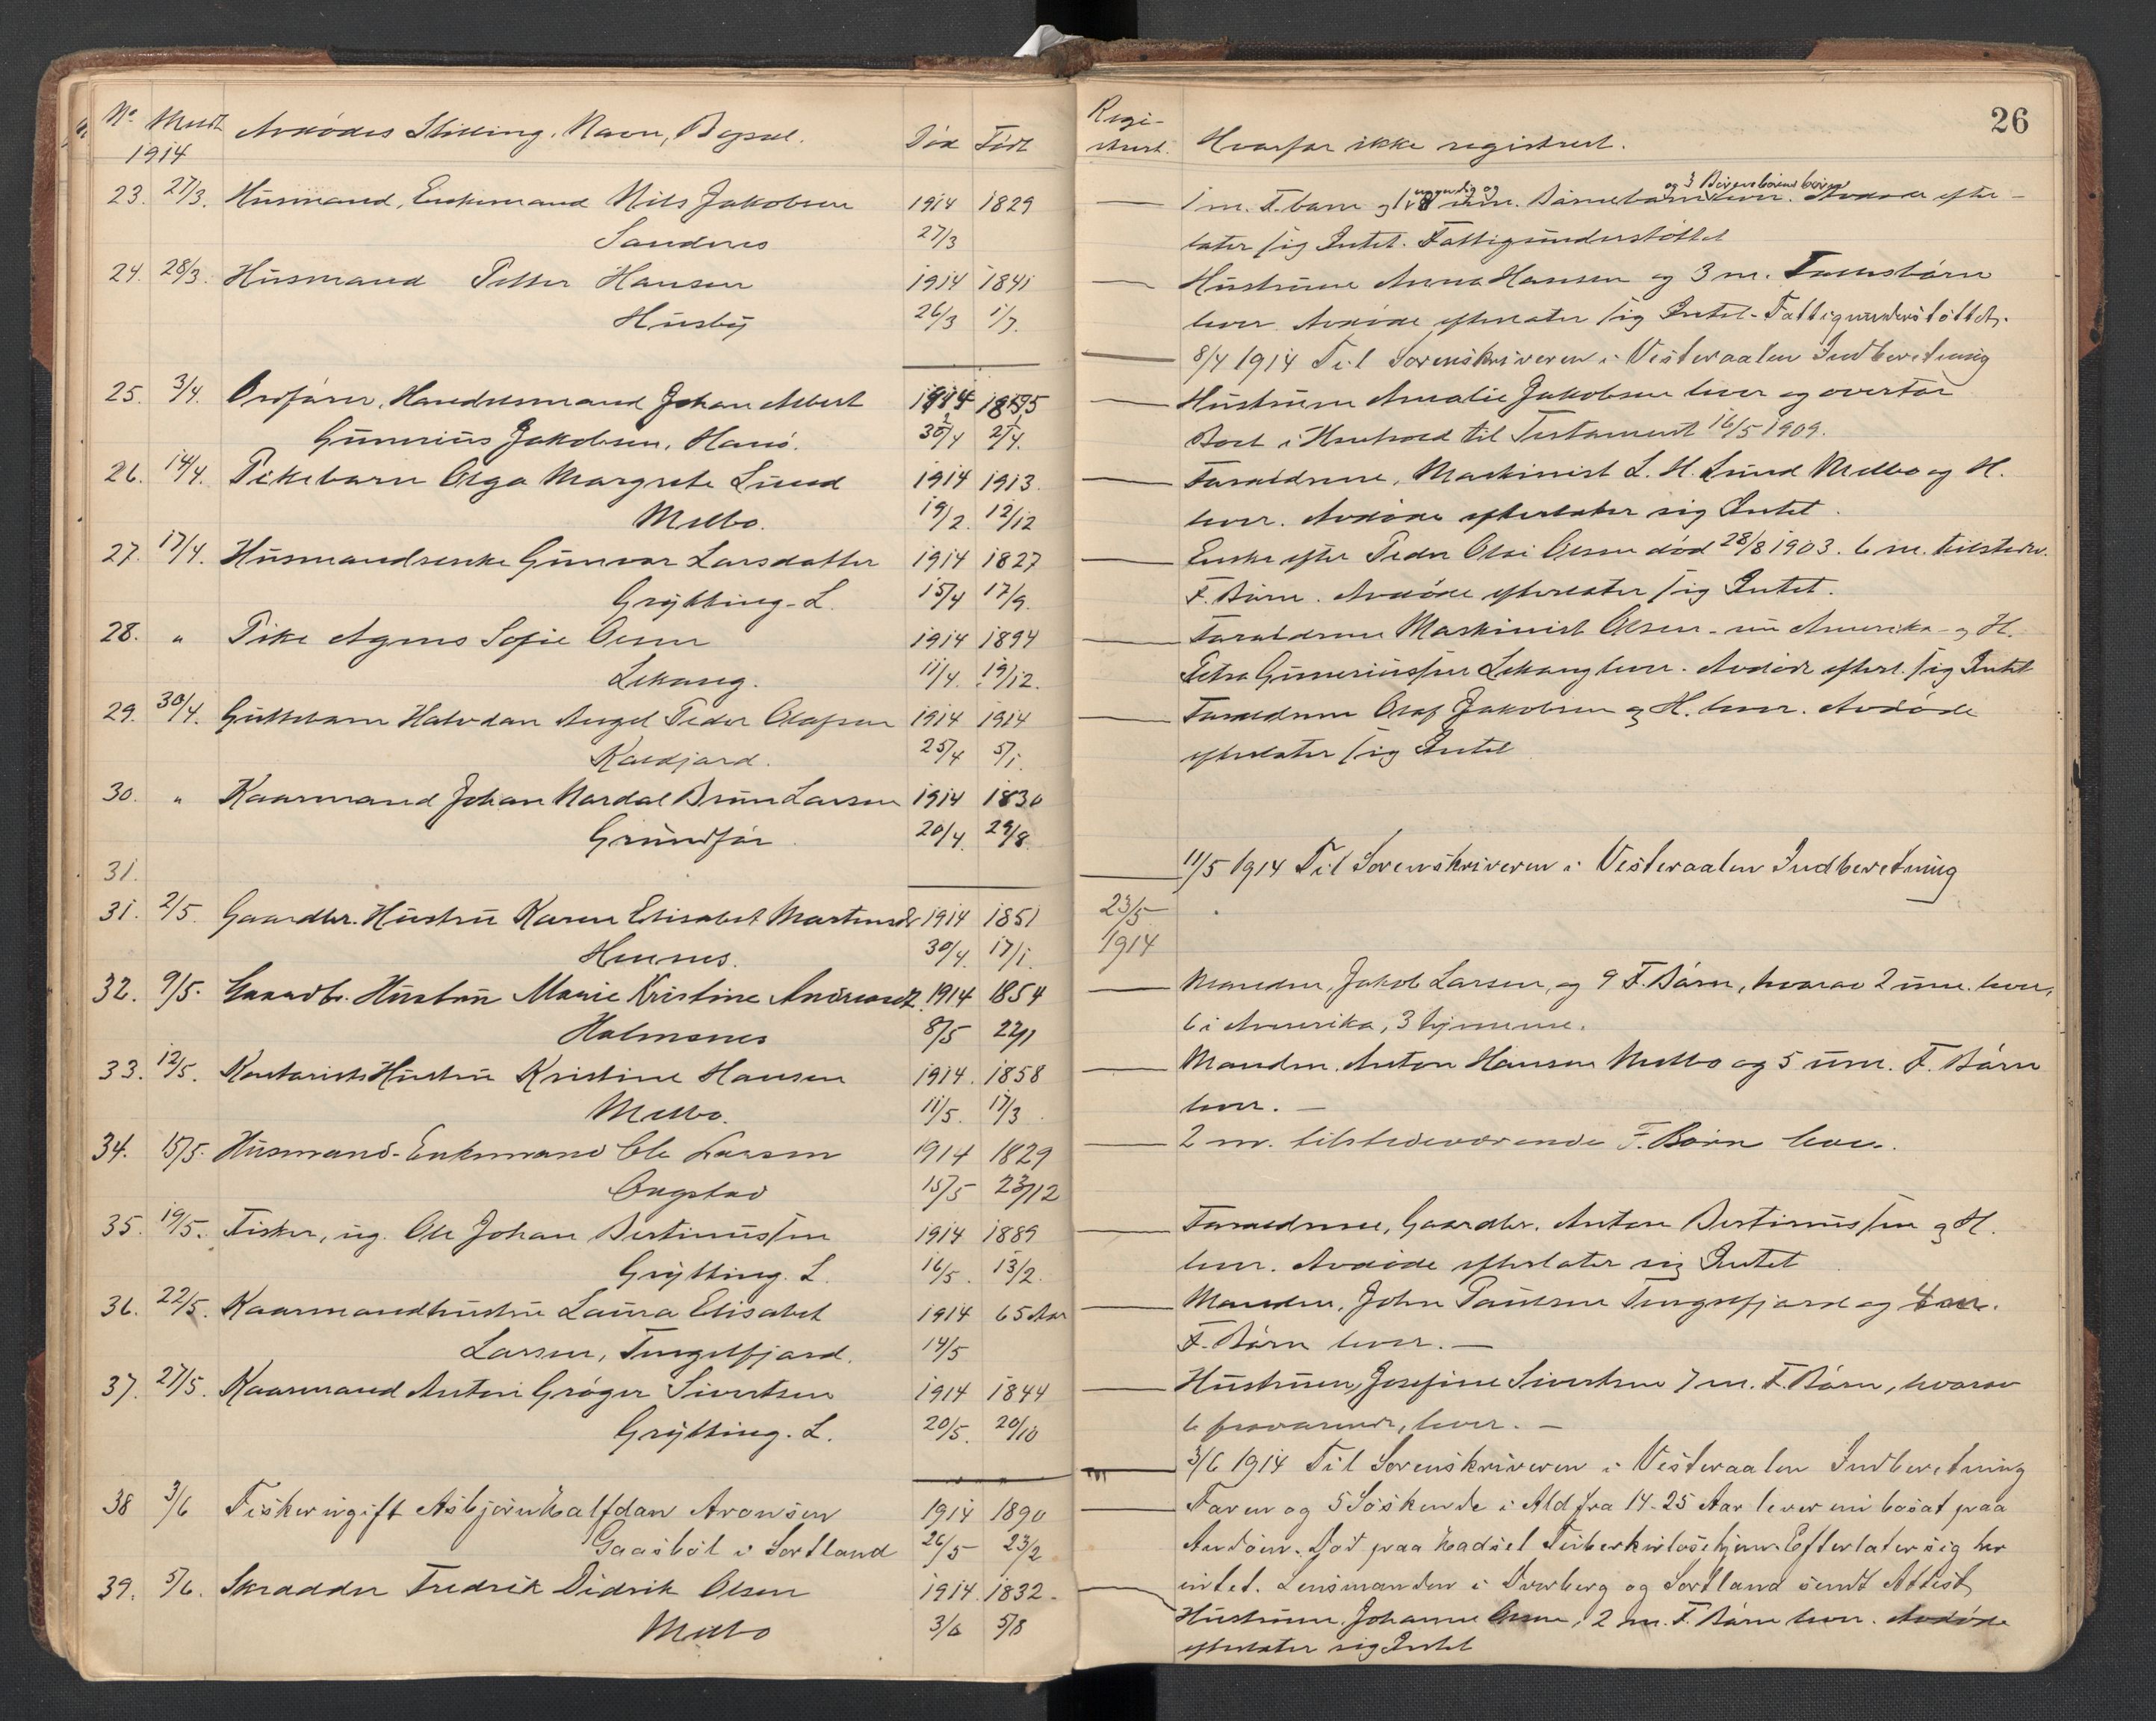 No Meldt Avdødes Stilling, Navn, Bopæl. Død Født
1914
23. 27/3. Husmand, Enkemand Nils Jakobsen 1914 1829
Sandnes 27/3
24. 28/3. Husmand Petter Hansen 1914 1841
Husby 26/3 1/7.
25. 3/4. Ordfører, Handelsmand Johan Albert 1914 1855
Gunerius Jakobsen, Hanø. 2/4.
26. 14/4. Pikebarn Olga Margrete Lund 1914 1913
Melbo. 19/2. 12/12
27. 17/4. Husmandsenke Gunvor Larsdatter 1914 1827
Grytting. L. 15/4 17/9.
28. " Pike Agnes Sofie Olsen 1914 1894
Lekang. 11/4. 19/12.
29. 30/4. Guttebarn Halvdan Angel Peder Olafsen 1914 1914
Kaldjord. 25/4 5/1.
30. " Kaarmand Johan Nordal Brun Larsen 1914 1830
Grundfør 20/4. 29/8.
31.
31. 2/5. Gaardbr. Hustru Karen Elisabet Martinsd. 1914 1851
Hennes. 30/4. 17/1.
32. 9/5. Gaardbr. Hustru Marie Kristine Andreasd. 1914 1854
Holmsnes 8/5 22/1
33. 12/5. Kontorists Hustru Kristine Hansen 1914. 1858
Melbo. 11/5. 17/3.
34. 15/5. Husmand-Enkemand Ole Larsen 1914 1829
Ongstad 15/5 23/12
35. 19/5. Fisker, ug. Ole Johan Bertinussen 1914 1889
Grytting. L. 16/5. 13/2.
36. 22/5. Kaarmandhustru Laura Elisabet 1914 65 Aar
Larsen, Tengelfjord. 14/5
37. 27/5. Kaarmand Anton Grøger Sivertsen 1914 1844
Grytting. L. 20/5. 20/10
38 3/6 Fisker ugift Asbjørn Halfdan Aronsen 1914 1890
Gaasbøl i Sortland 26/5 23/2
39. 5/6. Skrædder Fredrik Didrik Olsen 1914. 1832.
Melbo 3/6 5/8
26
Regi-
strert. Hvorfor ikke registrert.
og 3 Børnebørns børn
1 m. F. barn og 1 umyndig og m. Barnebarn lever. Avdøde efter-
later sig Intet. Fattigunderstøttet
Hustruen Anna Hansen og 3 m. Fællesbørn
lever. Avdøde efterlater sig Intet. Fattigunderstøttet.
8/4 1914 Til Sorenskriveren i Vesteraalen Indberetning
Hustruen Amalie Jakobsen lever og overtar
Boet i Henhold til Testament 16/5 1909.
Forældrene, Maskinist L. H. Lund Melbo og H.
lever. Avdøde efterlater sig Intet.
Enke efter Peder Olai Olsen død 28/8 1903. 6 m. tilstedev.
F. Børn. Avdøde efterlater sig Intet.
Forældrene Maskinist Olsen - nu Amerika - og H.
Petra Gunneriussen Lekang lever. Avdøde efterl. sig Intet
Forældrene Olaf Jakobsen og H. lever. Avdøde
efterlater sig Intet
11/5 1914 Til Sorenskriveren i Vesteraalen Indberetning
23/5
1914
Manden, Jakob Larsen, og 9 F. Børn, hvorav 2 um. lever,
6 i Amerika, 3 hjemme.
Manden. Anton Hansen Melbo og 5 um. F. Børn
lever. —
2 m. tilstedeværende F. Børn lever.
Forældrene, Gaardbr. Anton Bertinussen og H.
lever. Avdøde efterlater sig Intet
Manden, John Paulsen Tengelfjord og 4 m.
F. Børn lever. —
Hustruen, Josefine Sivertsen 7 m. F. Børn, hvorav
6 fraværende, lever. —
3/6 1914 Til Sorenskriveren i Vesteraalen Indberetning
Faren og 5 Søskende i Ald fra 14-25 Aar lever nu bosat paa
Andøen. Død paa Hadsel Tuberkuløsehjem. Efterlater sig her
intet. Lensmanden i Dverberg og Sortland sendt Attest
Hustruen, Johanne Olsen, 2 m. F. Børn lever. Avdøde
efterlater sig Intet